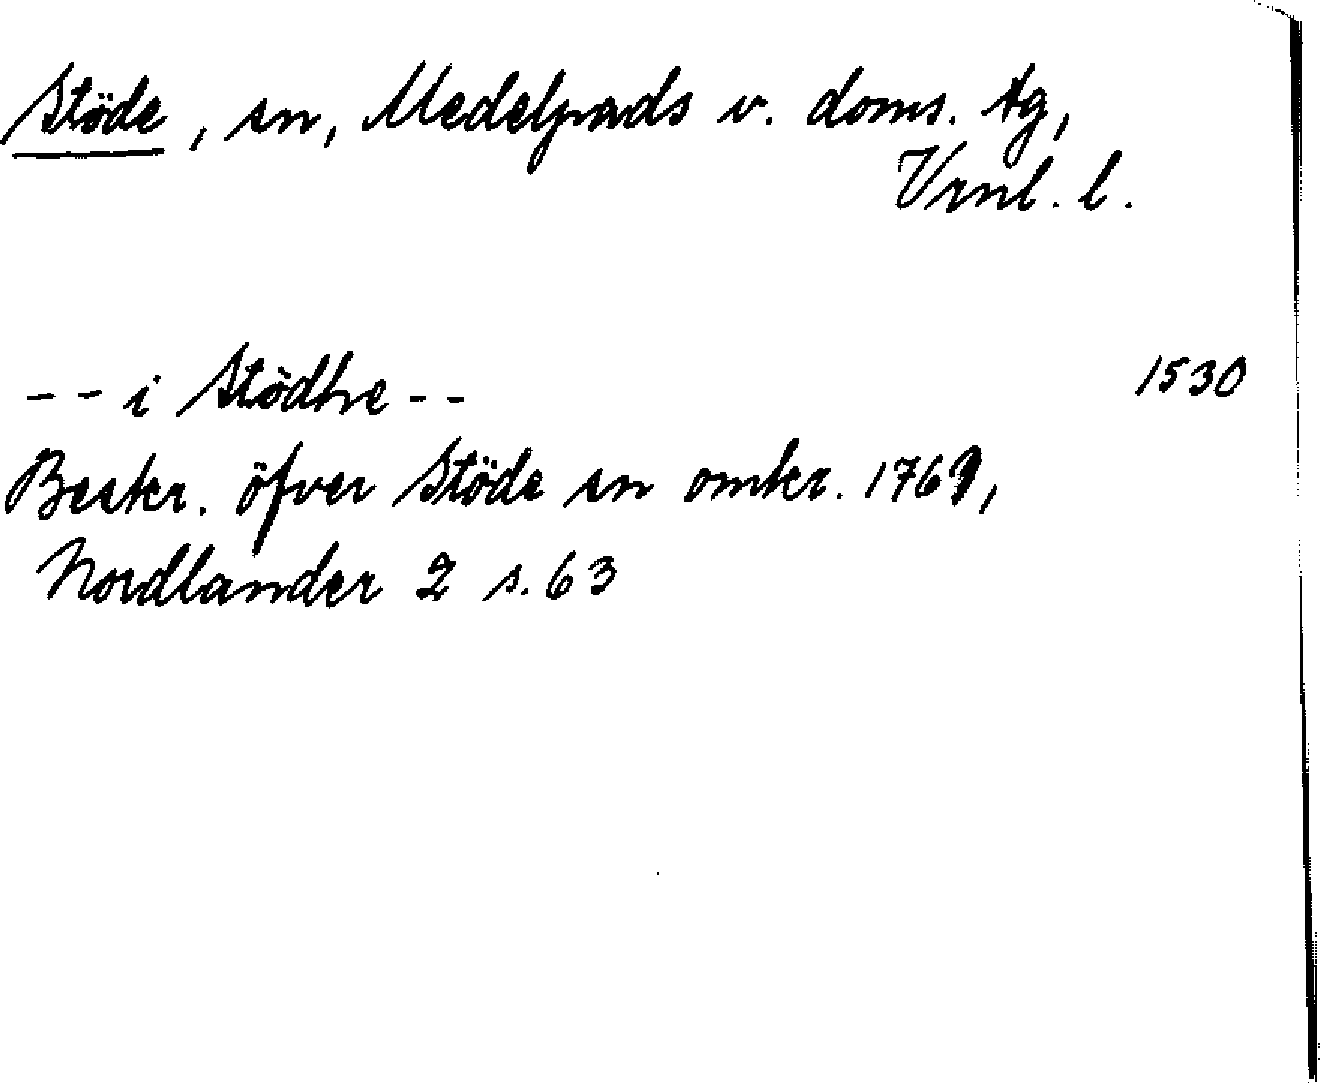 Stöde, sn, Medelpads v. doms. tg,
Vrnl. l.
-- i Stödhe -- 1530
Beskr. öfver Stöde sn omkr. 1769,
Nordlander 2 s. 63